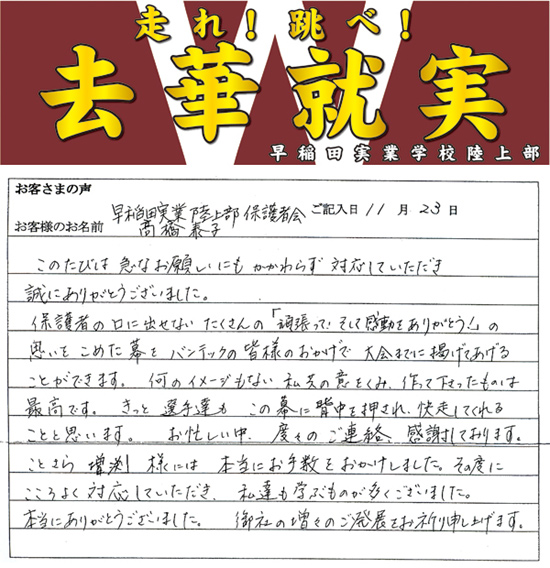 走れ！跳べ！
去華就実
早稲田実業学校陸上部
お客さまの声
早稲田実業陸上部保護者会 ご記入日 11 月 23 日
お客様のお名前 髙橋泰子
このたびは 急なお願いにも かかわらず 対応していただき
誠にありがとうございました。
保護者の口に出せない たくさんの「頑張って！そして感動をありがとう！」の
思いを こめた幕を バンテックの皆様のおかげで 大会までに掲げてあげる
ことができます。 何のイメージもない 私共の意をくみ、作って下さったものは
最高です。 きっと 選手達も この幕に背中を押され、快走してくれる
ことと思います。 お忙しい中、度々のご連絡 感謝しております。
ことさら 増渕 様には 本当にお手数をおかけしました。その度に
こころよく 対応していただき、 私達も学ぶものが多くございました。
本当にありがとうございました。 御社の増々のご発展をお祈り申し上げます。